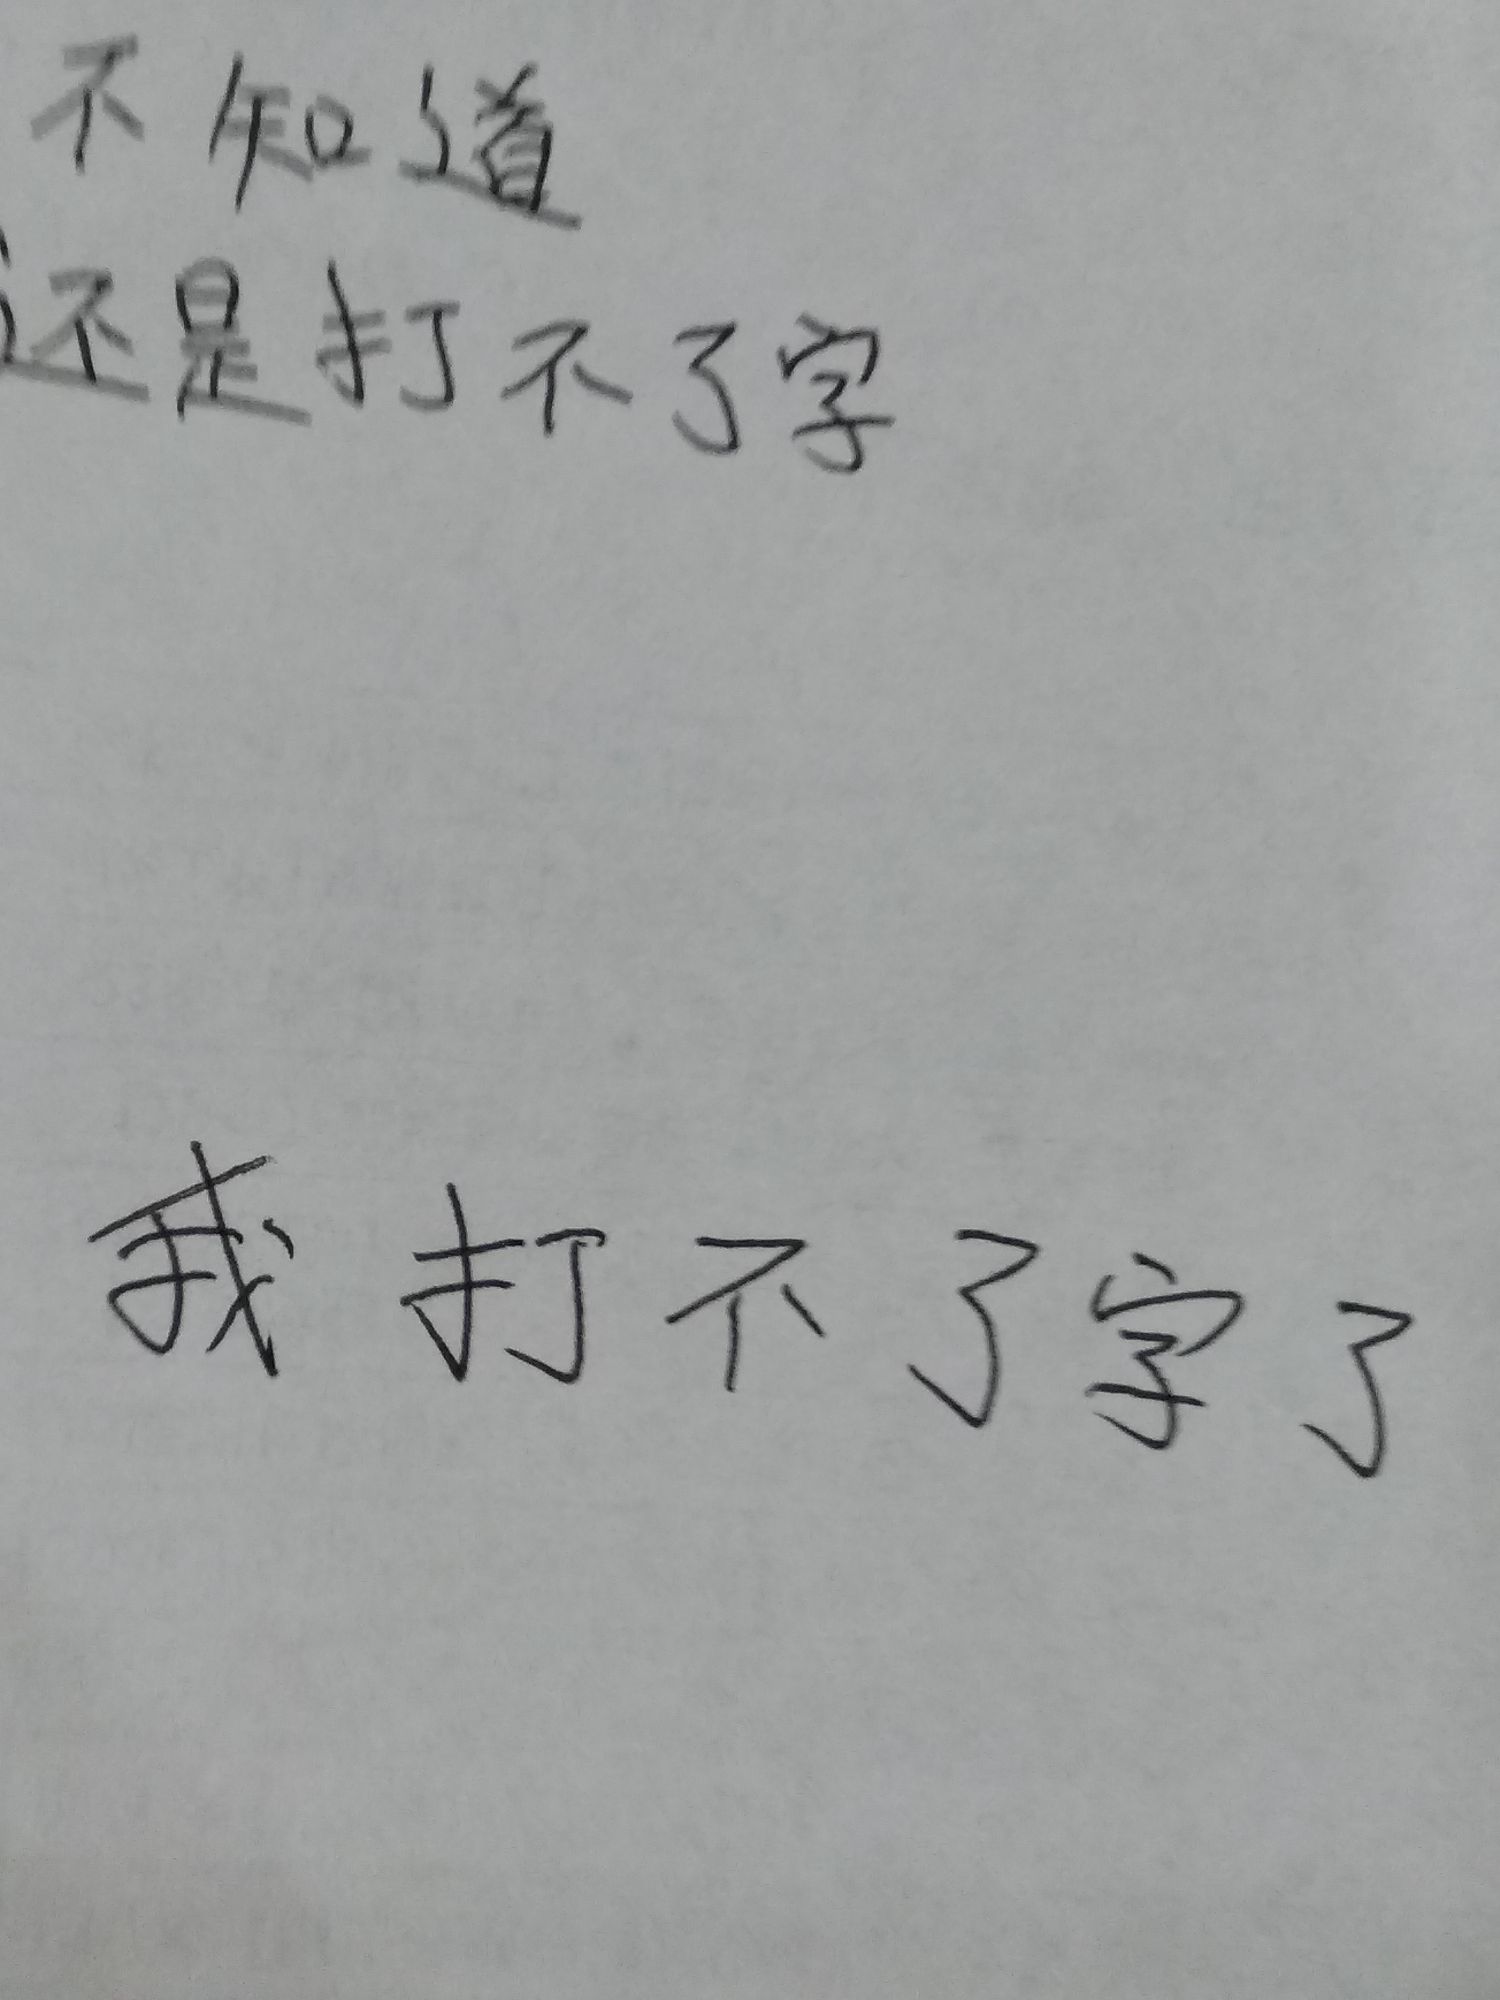 不知道
还是打不了字
我打不了字了